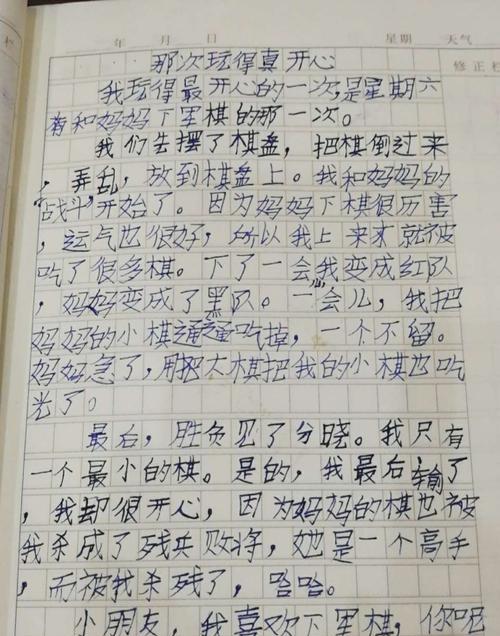 年 月 日 星期 天气
修正栏
那次玩得真开心
我玩得最开心的一次,是星期六
和妈妈下军棋的那一次。
我们先摆了棋盘，把棋倒过来
，弄乱，放到棋盘上。我和妈妈的
“战斗”开始了。因为妈妈下棋很厉害
，运气也很好，所以我上来就被
吃了很多棋。下了一会我变成红队
，妈妈变成了黑队。一会儿，我把
妈妈的小棋通通吃掉，一个不留。
妈妈急了，用大棋把我的小棋也吃
光了。
最后，胜负见了分晓。我只有
一个最小的棋。是的，我最后输了
，我却很开心，因为妈妈的棋也被
我杀成了残兵败将，她是一个高手
，而被我杀残了，哈哈。
小朋友，我喜欢下军棋，你呢